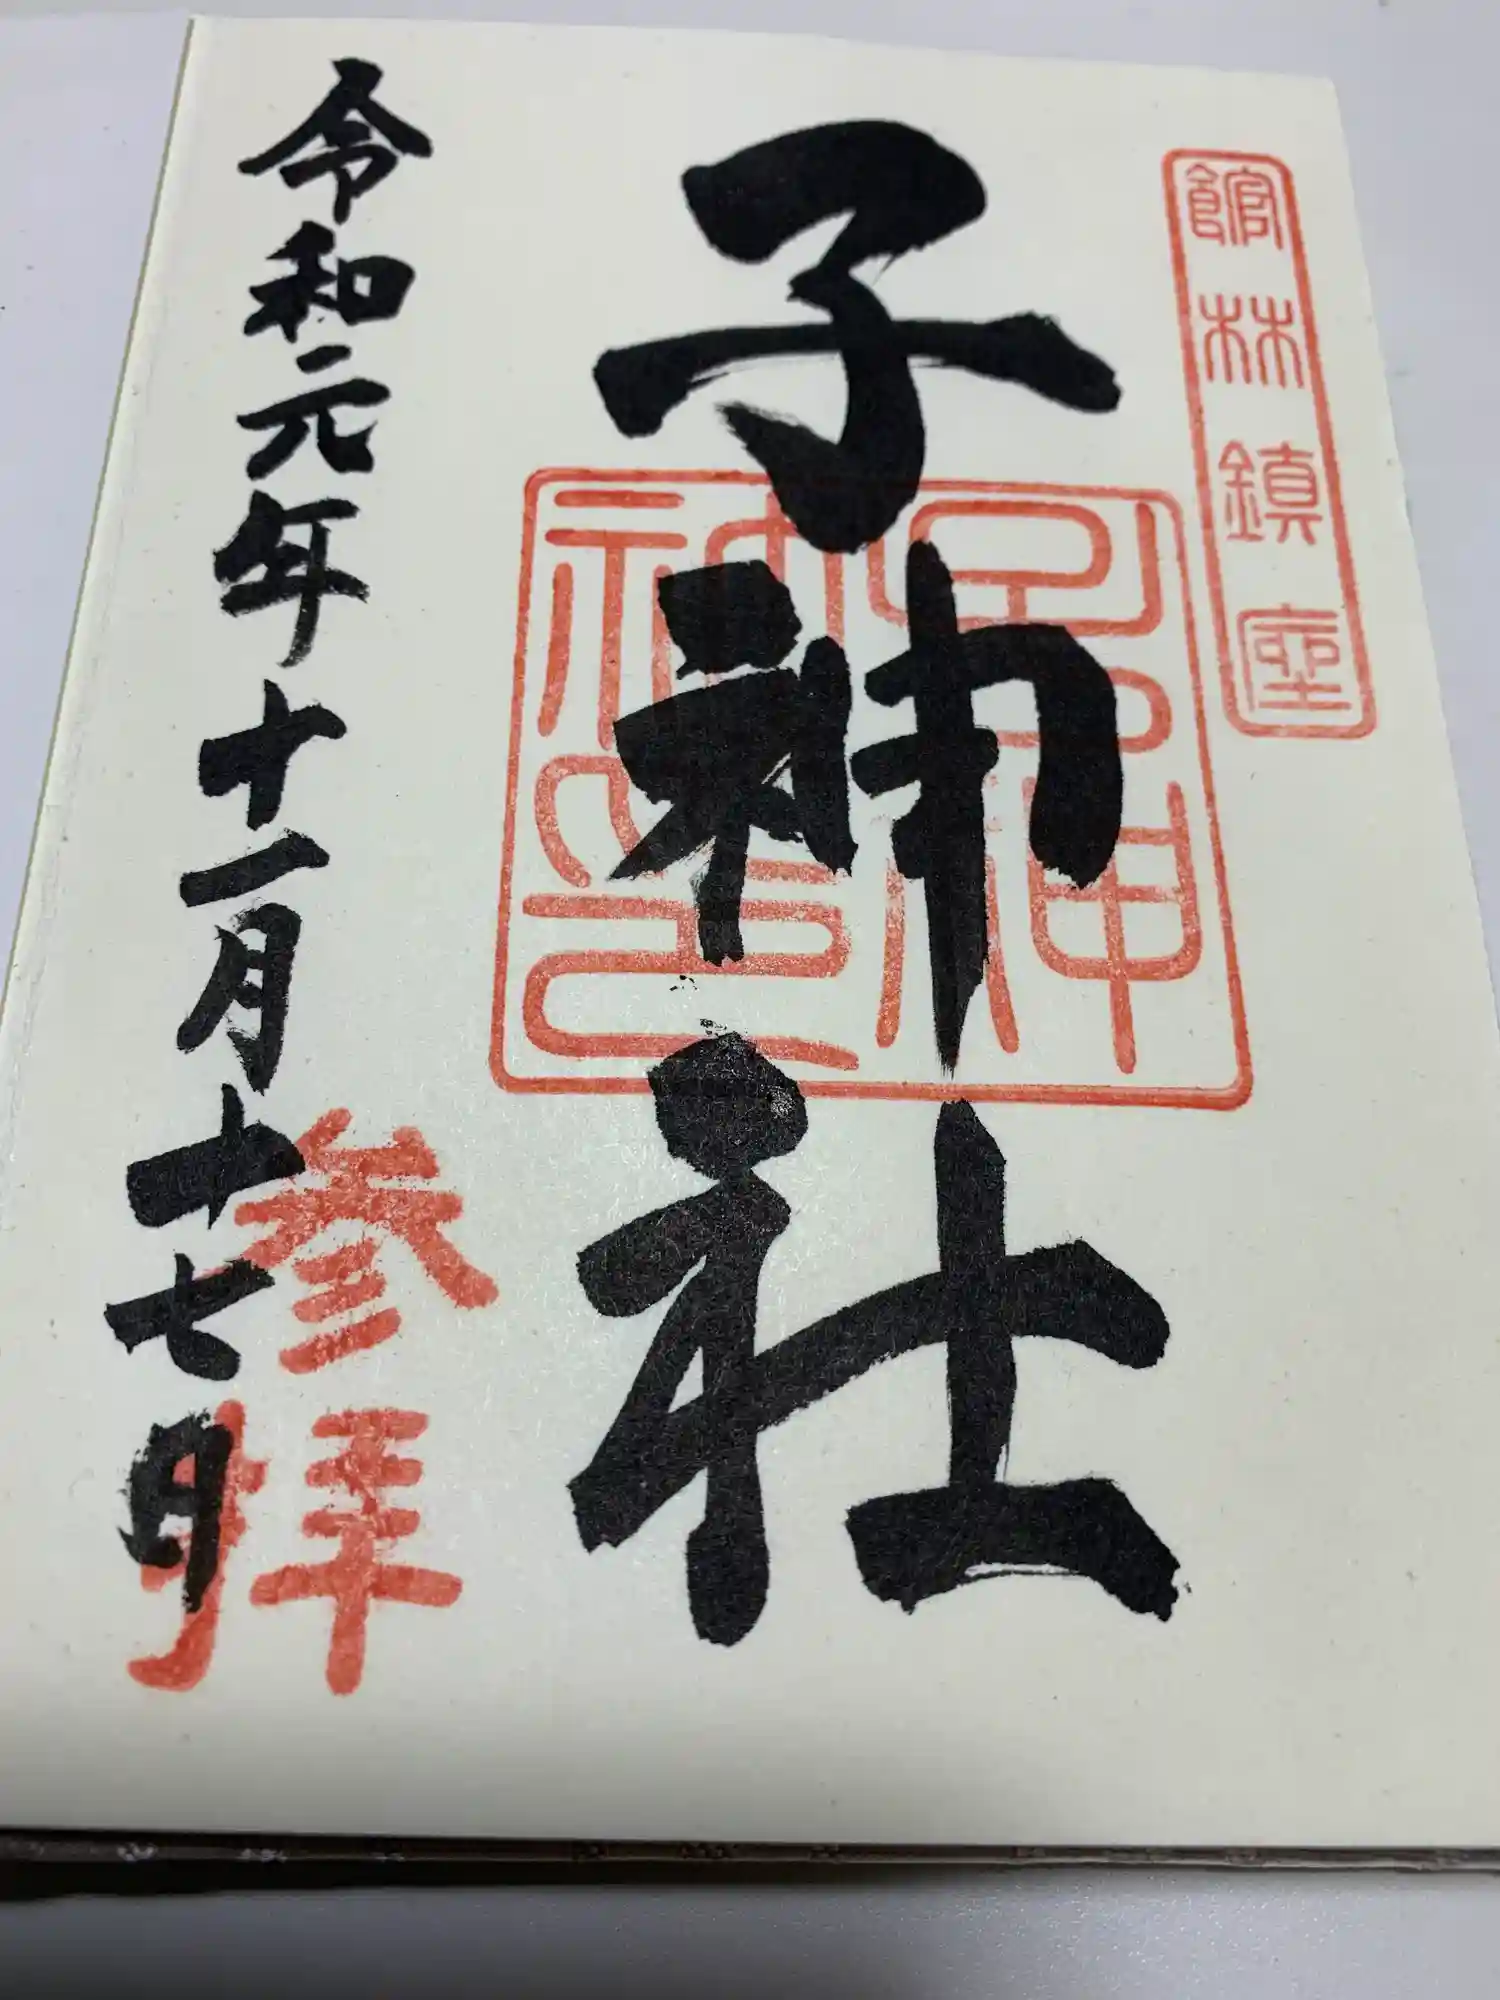 館林鎮座
子神社
子之神社印
参拝
令和元年十一月十七日